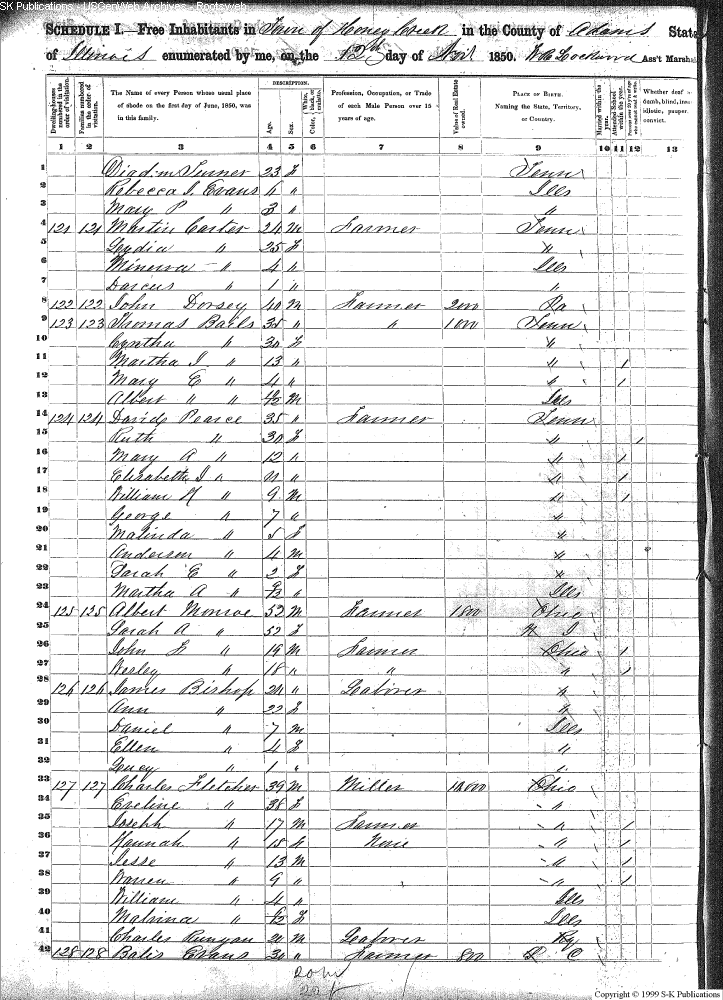 SK Publications - USGenWeb Archives - Rootsweb
SCHEDULE I.—Free Inhabitants in Town of Honey Creek in the County of Adams State
of Illinois enumerated by me, on the 12th day of 1850. Lockwood Ass't Marshal
Dwelling-houses numbered in the order of visitation. Families numbered in the order of visitation. The Name of every Person whose usual place of abode on the first day of June, 1850, was in this family. DESCRIPTION. Age. Sex. Color, White, black, or mulatto. Profession, Occupation, or Trade of each Male Person over 15 years of age. Value of Real Estate owned. PLACE OF BIRTH. Naming the State, Territory, or Country. Married within the year. Attended School within the year. Persons over 20 y'rs of age who cannot read & write. Whether deaf & dumb, blind, insane, idiotic, pauper, or convict.
1 2 3 4 5 6 7 8 9 10 11 12 13
1 Turner 23 f Tenn
2 Rebecca J. Evans 4 " Ills
3 Mary P " 3 " "
4 121 121 Martin Carter 24 M Farmer Tenn
5 Lydia " 25 f "
6 Minerva " 4 " Ills
7 Darcus " 1 " "
8 122 122 John Dorsey 40 M Farmer 2000 Pa
9 123 123 Thomas Bails 35 " " 1000 Tenn
10 Cyntha " 30 f "
11 Martha J " 13 " " /
12 Mary E " 4 " " /
13 Albert " " M Ills
14 124 124 David Pearce 35 " Farmer Tenn
15 Ruth " 30 f " /
16 Mary A " 12 " " /
17 Elizabeth J " 11 " " /
18 William H " 9 M " /
19 George " 7 " "
20 Malinda " 5 f "
21 Anderson " 4 M "
22 Sarah E " 2 f "
23 Martha A " " Ills
24 125 125 Albert Monroe 52 M Farmer 1800 Ohio
25 Sarah A " 52 f N J
26 John " 19 M Farmer Ohio /
27 Wesley " 18 " " " /
28 126 126 James Bishop 24 " Labover "
29 Ann " 22 f "
30 Daniel " 7 M Ills
31 Ellen " 4 f "
32 Lucy " 1 " "
33 127 127 Charles Fletcher 39 M Miller 10,000 Ohio
34 Eveline " 38 f "
35 Joseph " 17 M Farmer " /
36 Hannah " 15 f None " /
37 Jesse " 13 M " /
38 Warren " 9 " " /
39 William " 4 " Ills
40 Malvina " f Ills
41 Charles Runyan 21 M Labover Ky
42 128 128 Balis Evans 30 " Farmer 800 C
Copyright © 1999 S-K Publications